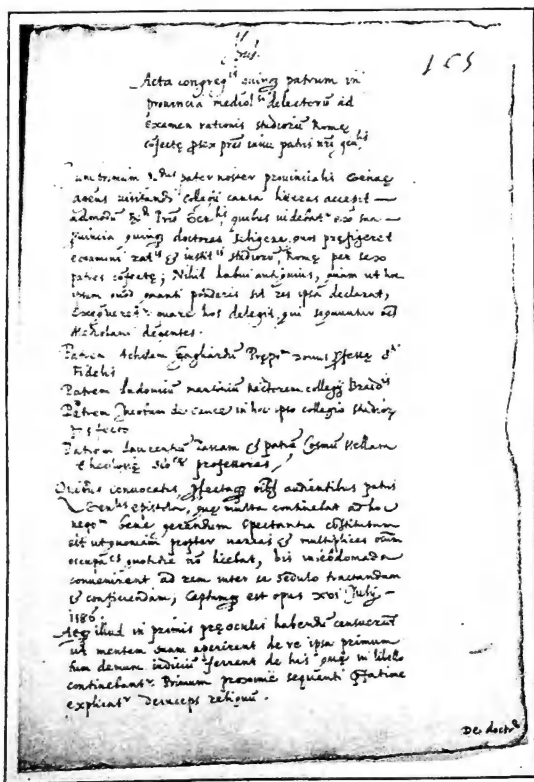 Jhs.
155
Acta congreg.is quinq patrum in
prouincia mediol. delectorū ad
examen rationis studiorū Romę
cōfectę p sex pres iussu patris nri gen.lis
pater noster prouincialis Genuę
agens uisitandi collegij causa literas accepit
admodū R.di Pris Gen.lis quibus uidebat.r ex sua
prouincia quinq doctores seligere, quos prefigeret
examini rat.is et instit.is studiorū, Romę per sex
patres cōfectę; Nihil habuit antiquius, quam ut hoc
ipsum quod quanti ponderis sit res ipsa declarat,
exequeret.r quare hos delegit, qui sequuntur oēs
Mediolani degentes.
Patrem Achillem Gagliardū Prepo. domus pfessę S.ti
Fidelis
Patrem Ludouicū rectorem collegij Braid.is
Patrem in hoc ipso collegio studior
pfectū
Patrem Laurentiū et patrē Cosmū Stellam
theologię professores
Quibus conuocatis, pfectaq oībs audientibus patris
Gen.lis epistola, quę multa continebat ad hoc
nego.m bene gerendum spectantia cōstitutum
est ut quoniam propter uarias et multiplices oīum
occupā.es quotidie nō licebat, bis in ebdomada
conuenirent ad rem inter se sedulo tractandam
et conficiendam; Ceptumq est opus XVI Julij
1586.
Atq illud in primis prę oculis habendū censuerūt
ut mentem suam aperirent de re ipsa primum
tum demum iudiciū ferrent de his quę in libello
continebant.r. Primum proximè sequenti pfatione
explicat.r deinceps reliquū.
De doctr.